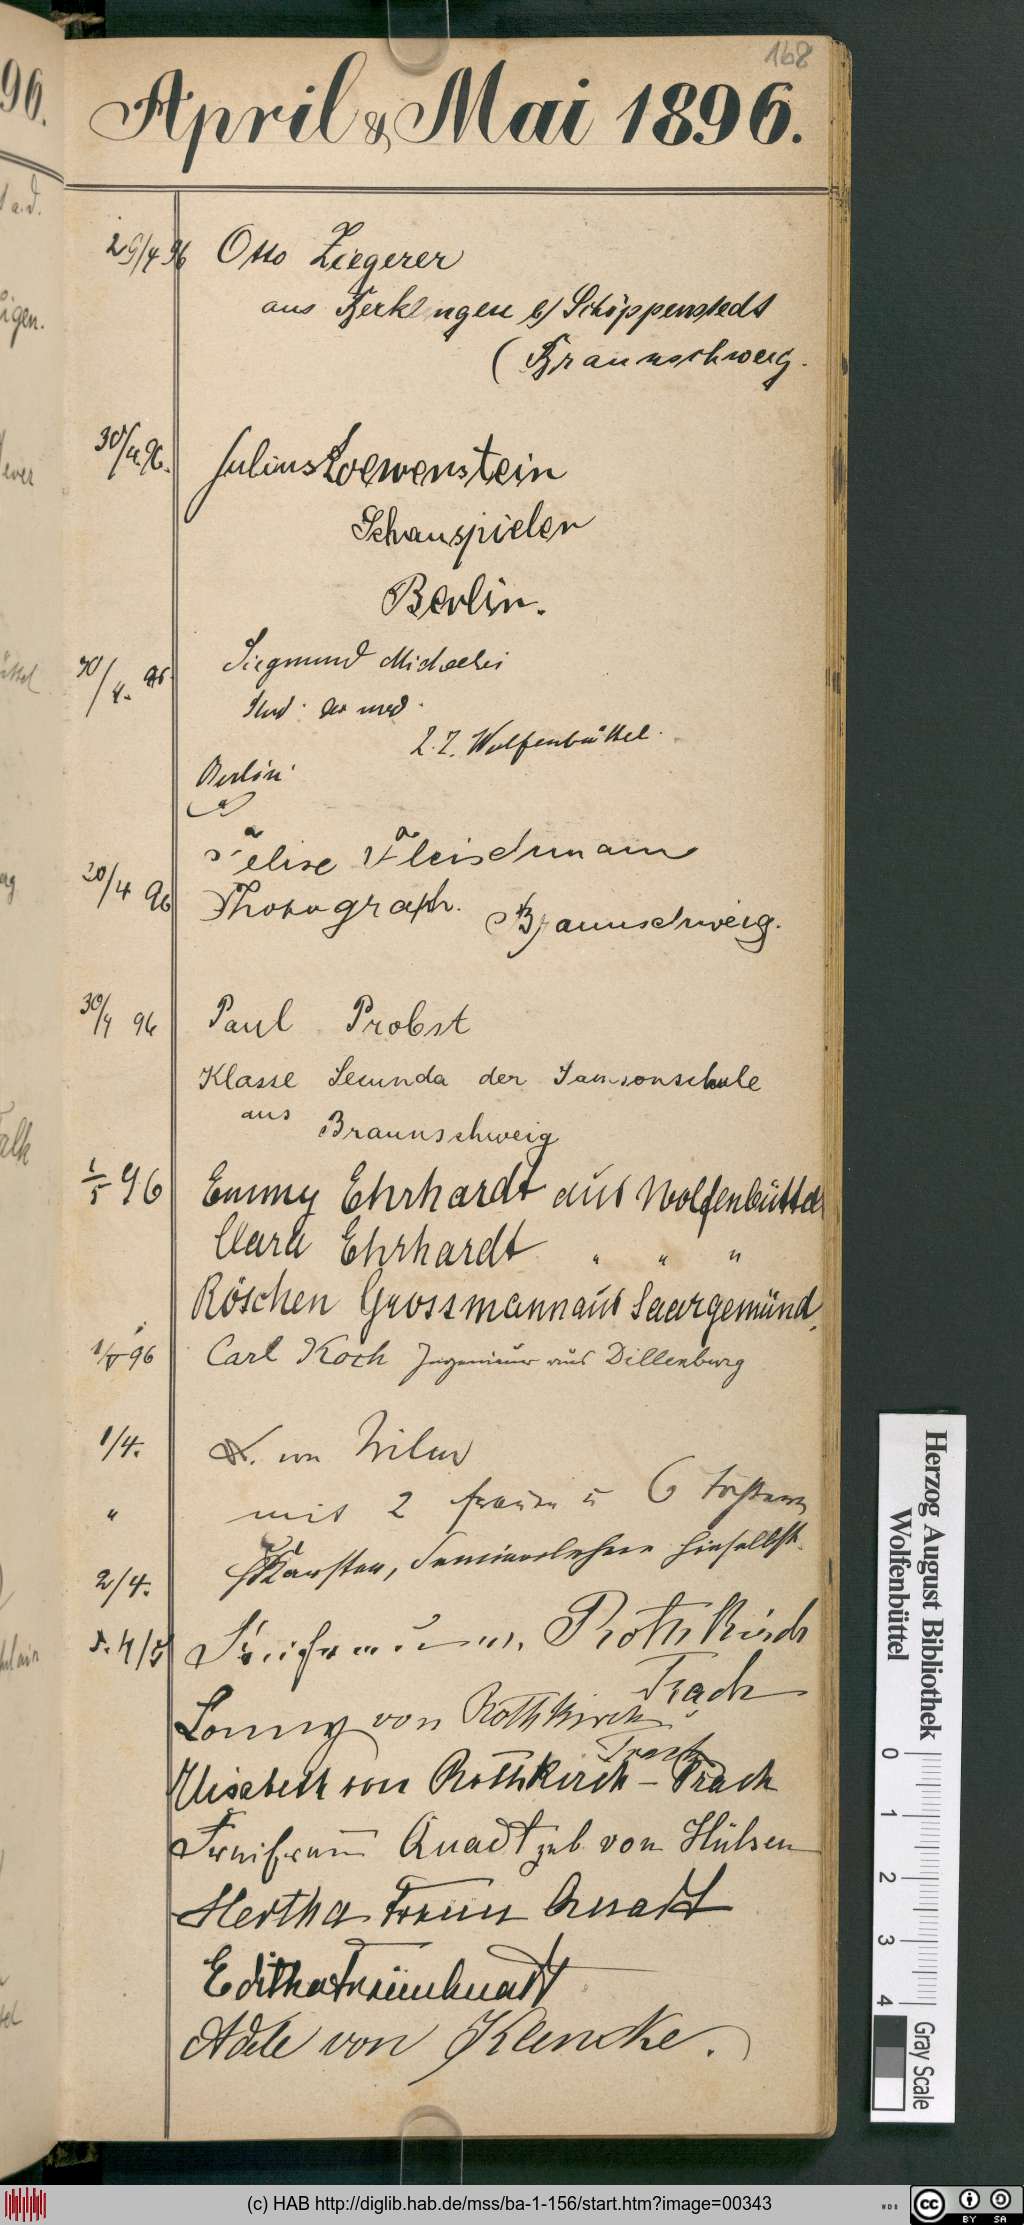 168
96.
April & Mai 1896.
29/4 96 Otto Ziegerer
aus Berklingen b/ Schöppenstedt
(Braunschweig.
30/4. 96. Julius Loewenstein
Schauspieler
Berlin.
30/4. 96. Siegmund Michaelis
Stud. med.
z. Z. Wolfenbüttel.
Berlin.
Felise Fleischmann
30/4 96 Photograph. Braunschweig.
30/4 96 Paul Probst
Klasse Secunda der Samsonschule
aus Braunschweig
1/5 96 Emmy Ehrhardt aus Wolfenbüttel
Clara Ehrhardt " " "
Röschen Grossmann aus Saargemünd,
1/V 96 Carl Koch Ingenieur aus Dillenburg
1/4. von
" mit 2 Frauen u 6 Töchtern
2/4. Karsten, Seminarlehrer hieselbst.
d. 4/5 Freifrau von Rothkirch
Trach
Lonny von Rothkirch
Trach
Elisabeth von Rothkirch-Trach
Freifrau Quadt geb. von Hülsen
Hertha Freiin Quadt
Editha Freiin Quadt
Adele von Klencke.
Herzog August Bibliothek
Wolfenbüttel
0 1 2 3 4
Gray Scale
(c) HAB http://diglib.hab.de/mss/ba-1-156/start.htm?image=00343
WDB
cc BY SA